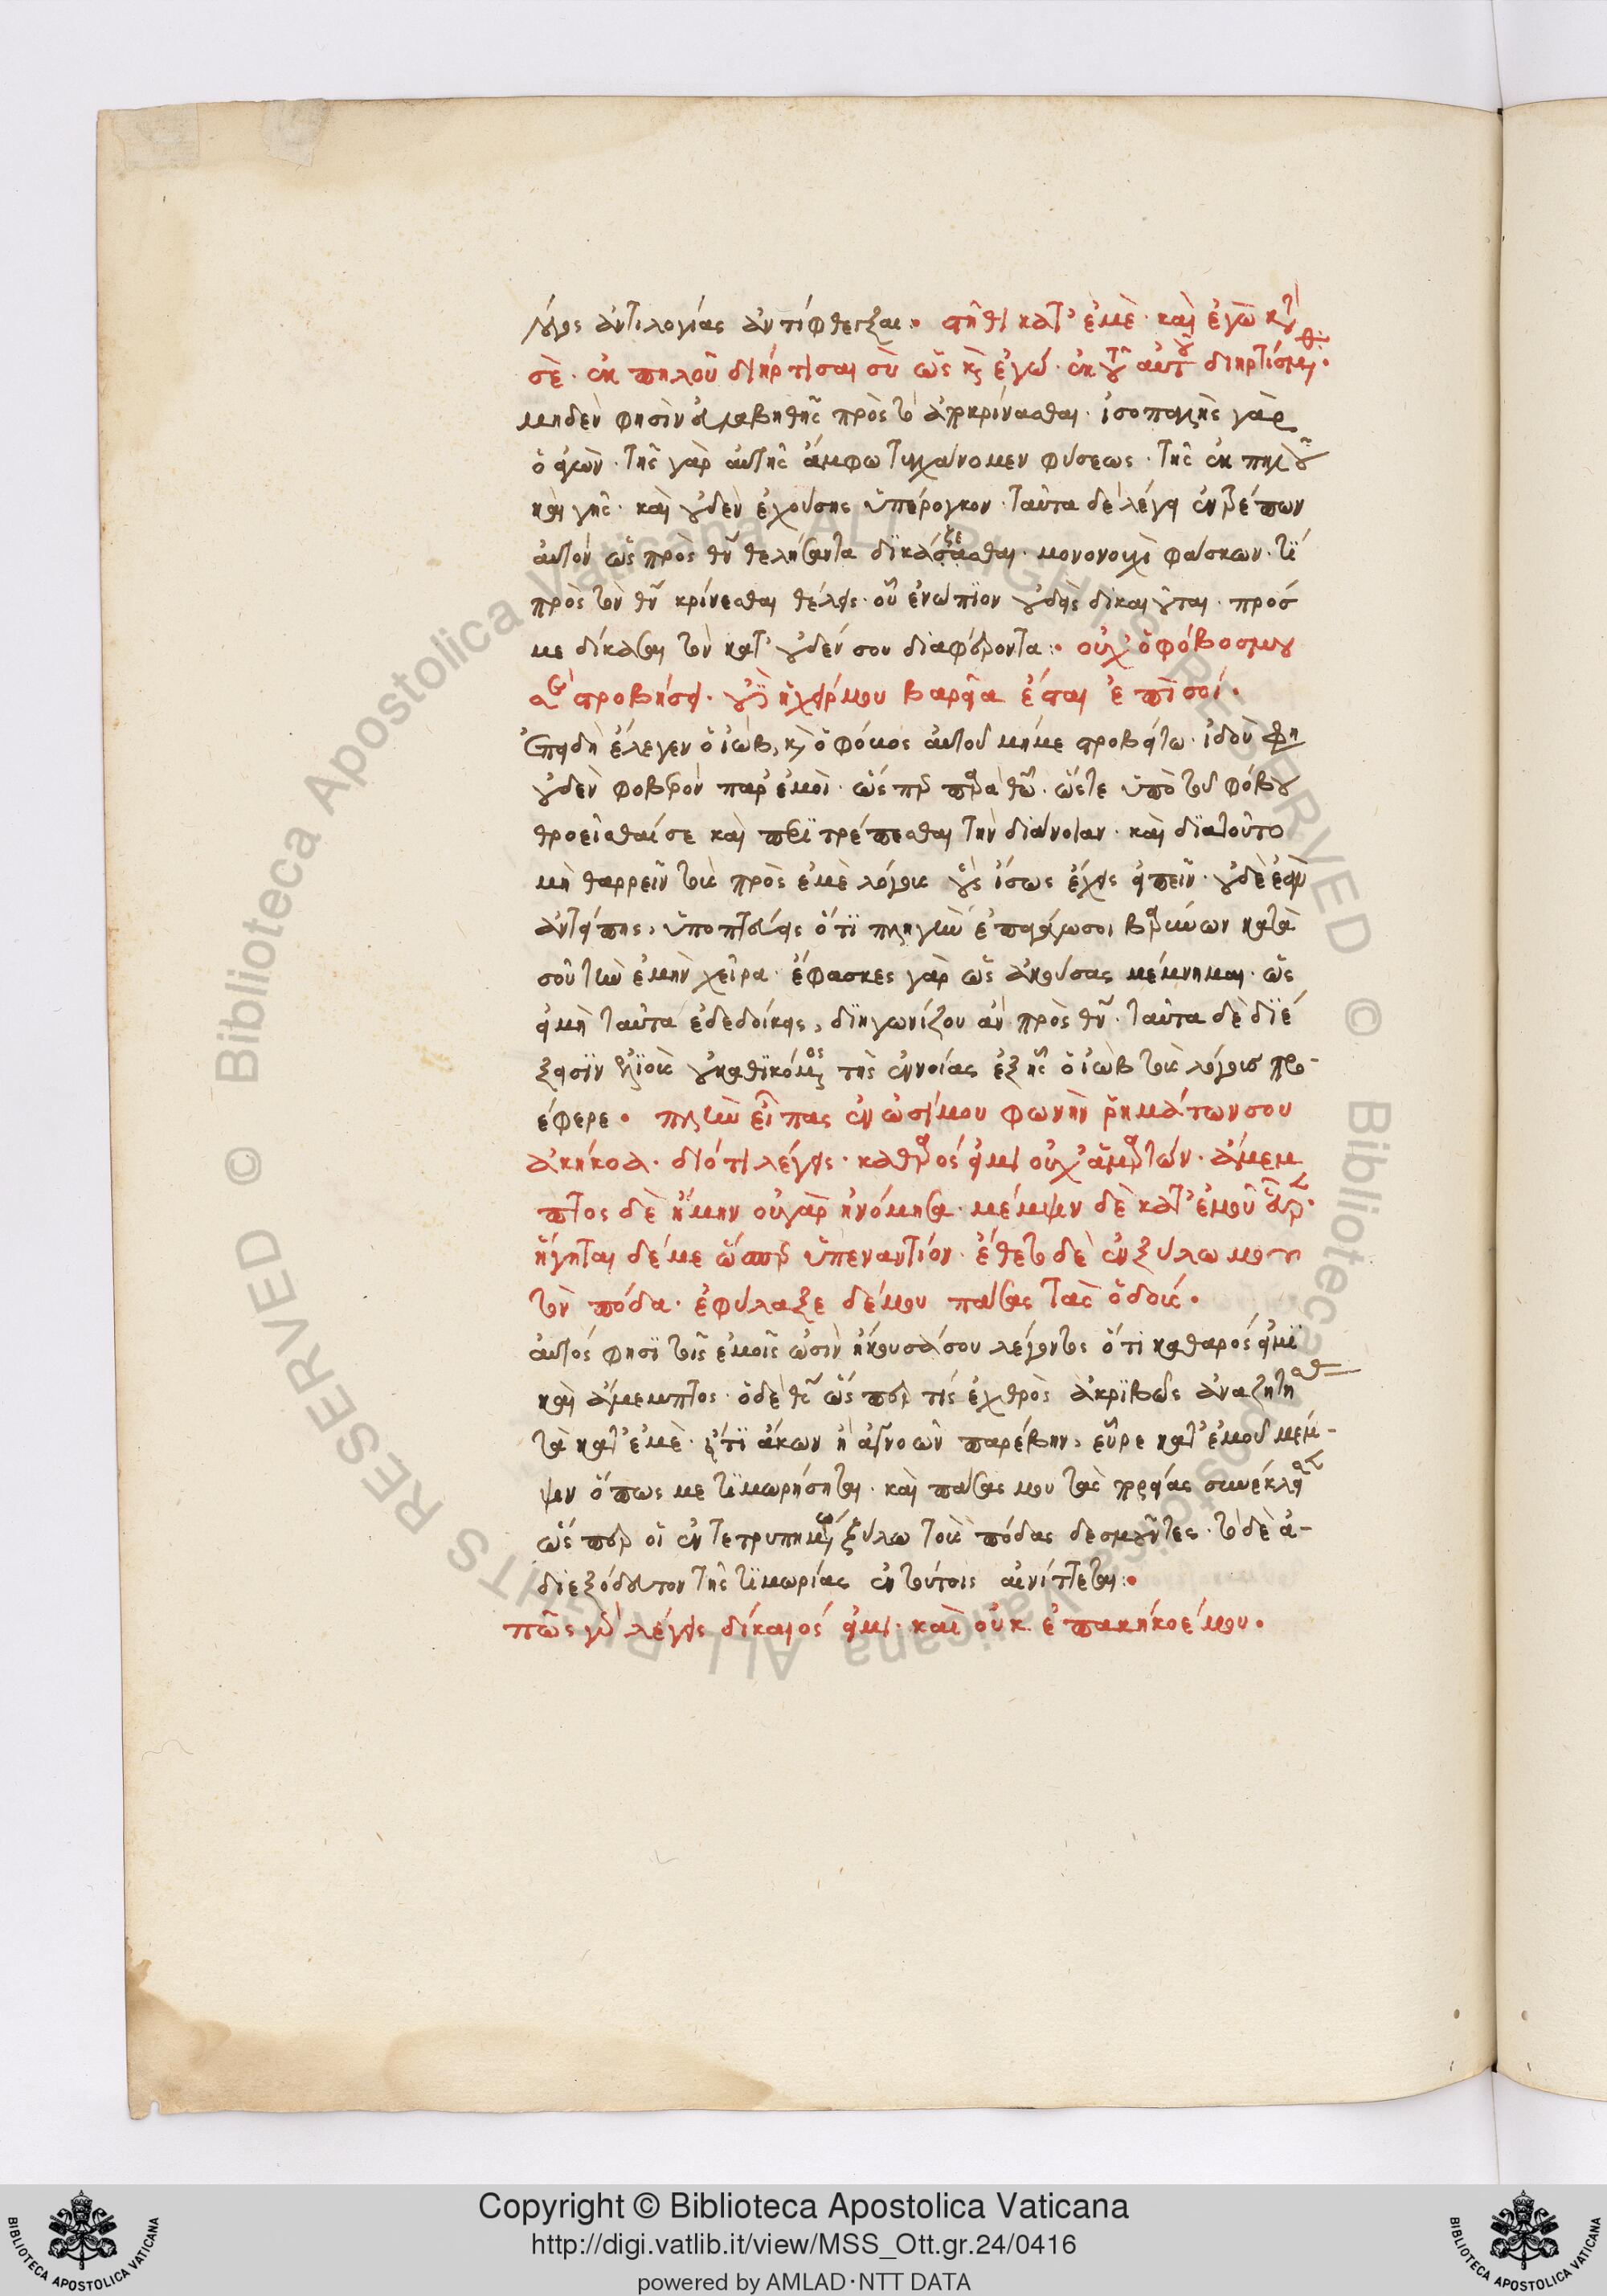 λόγος ἀντιλογίας ἀντίφθεγξαι· στῆθι κατ' ἐμὲ· καὶ ἐγὼ κατὰ
σὲ· ἐκ πηλοῦ διήρτισαι σὺ ὡς καὶ ἐγώ· ἐκ τοῦ αὐτοῦ διηρτίσμεθα·
μηδὲν φησὶν εὐλαβηθῆς πρὸς τὸ ἀποκρίνασθαι· ἰσοπαλὴς γὰρ
ὁ ἀγὼν· τῆς γὰρ αὐτῆς ἄμφω τυγχάνομεν φύσεως· τῆς ἐκ πηλοῦ
καὶ γῆς· καὶ οὐδὲν ἐχούσης ὑπέρογκον· ταῦτα δὲ λέγει ἐντρέπων
αὐτὸν ὡς πρὸς θν θελήσαντα δικάσασθαι· μονονουχὶ φάσκων· τί
πρὸς τὸν θν κρίνεσθαι θέλεις· οὗ ἐνώπιον οὐδεὶς δικαιοῦται· πρός
με δίκασαι τὸν κατ' οὐδέν σου διαφέροντα· οὐχ ὁ φόβος μου
σε στροβήσει· οὐδὲ ἡ χείρ μου βαρεῖα ἔσται ἐπὶ σοί·
Ἐπειδὴ ἔλεγεν ὁ ἰώβ, καὶ ὁ φόβος αὐτοῦ μή με στροβείτω· ἰδοὺ φη
οὐδὲν φοβερὸν παρ' ἐμοὶ· ὥσπερ παρὰ θω· ὥστε ὑπὸ τοῦ φόβου
θροεῖσθαί σε καὶ περιτρέπεσθαι τὴν διάνοιαν· καὶ διατοῦτο
μὴ θαρρεῖν τοὺς πρὸς ἐμὲ λόγους οὓς ἴσως ἔχεις εἰπεῖν· οὐδὲ ἐὰν
ἀντείπης, ὑποπτεύεις ὅτι πληγὴν ἐπαγάγω σοι βαρύνων κατὰ
σοῦ τὴν ἐμὴν χεῖρα· ἔφασκες γὰρ ὡς ἀκούσας μέμνημαι· ὡς
εἰ μὴ ταῦτα ἐδεδοίκεις, διηγωνίζου ἂν πρὸς θν· ταῦτα δὲ διέ
ξεισιν οὐ καθικόμενος τῆς ἐννοίας ἐξ ἧς ὁ ἰὼβ τοὺς λόγους προ-
έφερε· πλὴν εἶπας ἐν ὠσί μου φωνὴν ῥημάτων σου
ἀκήκοα· διότι λέγεις· καθαρός εἰμι οὐχ ἁμαρτών· ἄμεμ
πτος δὲ ἤμην οὐ γὰρ ἠνόμησα· μέμψιν δὲ κατ' ἐμοῦ εὗρεν·
ἥγηται δέ με ὥσπερ ὑπεναντίον· ἔθετο δὲ ἐν ξύλω μου
τὸν πόδα· ἐφύλαξε δέ μου πάσας τὰς ὁδούς·
αὐτός φησι τοῖς ἐμοῖς ὠσὶν ἤκουσά σου λέγοντος ὅτι καθαρός εἰμι
καὶ ἄμεμπτος· ὁ δὲ θς ὥσπερ τίς ἐχθρὸς ἀκριβῶς ἀναζητήσας
τὰ κατ' ἐμὲ· εἴτι ἄκων ἢ ἀγνοῶν παρέβην, εὗρε κατ' ἐμοῦ μέμ-
ψιν ὅπως με τιμωρήσηται· καὶ πάσας μου τὰς πορείας συνέκλεισεν
ὥσπερ οἱ ἐν τετρυπημένω ξύλω τοὺς πόδας δεσμοῦντες· τὸ δὲ ἀ-
διεξόδευτον τῆς τιμωρίας ἐν τούτοις αἰνίττεται·
πῶς γὰρ λέγεις δίκαιός εἰμι· καὶ οὐκ ἐπακήκοέ μου·
© Biblioteca Apostolica Vaticana ALL RIGHTS RESERVED
© Biblioteca Apostolica Vaticana ALL RIGHTS RESERVED
Copyright © Biblioteca Apostolica Vaticana
http://digi.vatlib.it/view/MSS_Ott.gr.24/0416
powered by AMLAD·NTT DATA
BIBLIOTECA APOSTOLICA VATICANA
BIBLIOTECA APOSTOLICA VATICANA